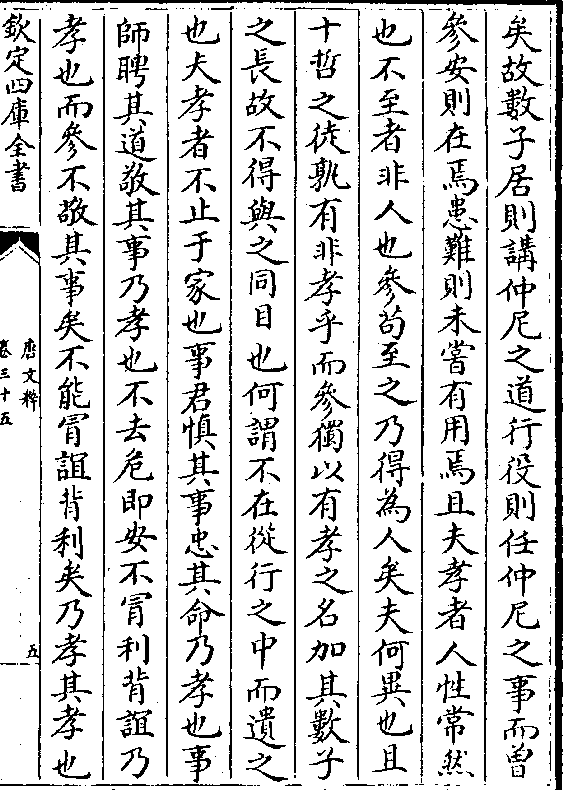 矣故數子居則講仲尼之道行役則任仲尼之事而曽
參安則在焉患難則未嘗有用焉且夫孝者人性常然
也不至者非人也參茍至之乃得為人矣夫何異也且
十哲之徒孰有非孝乎而參獨以有孝之名加其數子
之長故不得與之同目也何謂不在從行之中而遺之
也夫孝者不止于家也事君慎其事忠其命乃孝也事
師聘其道敬其事乃孝也不去危即安不冐利背誼乃
孝也而參不敬其事矣不能冐誼背利矣乃孝其孝也
欽定四庫全書
唐文粹
卷三十五
五